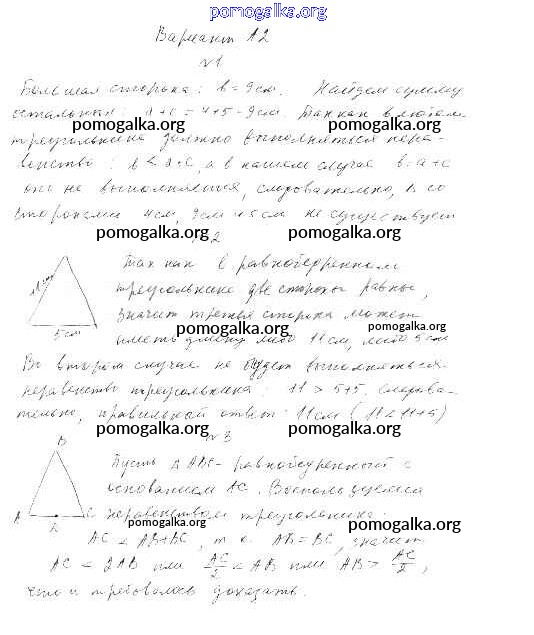 pomogalka.org
Вариант А2
№1
Большая сторона: b = 9 см. Найдем сумму
остальных: a + c = 4 + 5 = 9 см. Так как в любом
pomogalka.org pomogalka.org
треугольнике должно выполняться нера-
венство: b < a + c, а в нашем случае b = a + c
оно не выполняется, следовательно, Δ со
сторонами 4 см, 9 см и 5 см не существует
pomogalka.org pomogalka.org
№2
Так как в равнобедренном
11 см
треугольнике две стороны равны,
значит третья сторона может
5 см
pomogalka.org pomogalka.org
иметь длину либо 11 см, либо 5 см
Во втором случае не будет выполняться
неравенство треугольника: 11 > 5+5. Следова-
тельно, правильный ответ: 11 см (11 < 11+5)
pomogalka.org pomogalka.org
№3
B
Пусть Δ ABC - равнобедренный с
основанием AC. Воспользуемся
A C
неравенством треугольника:
pomogalka.org pomogalka.org
AC < AB+BC, т.к. AB = BC, значит
AC < 2AB или AC/2 < AB или AB > AC/2,
что и требовалось доказать.